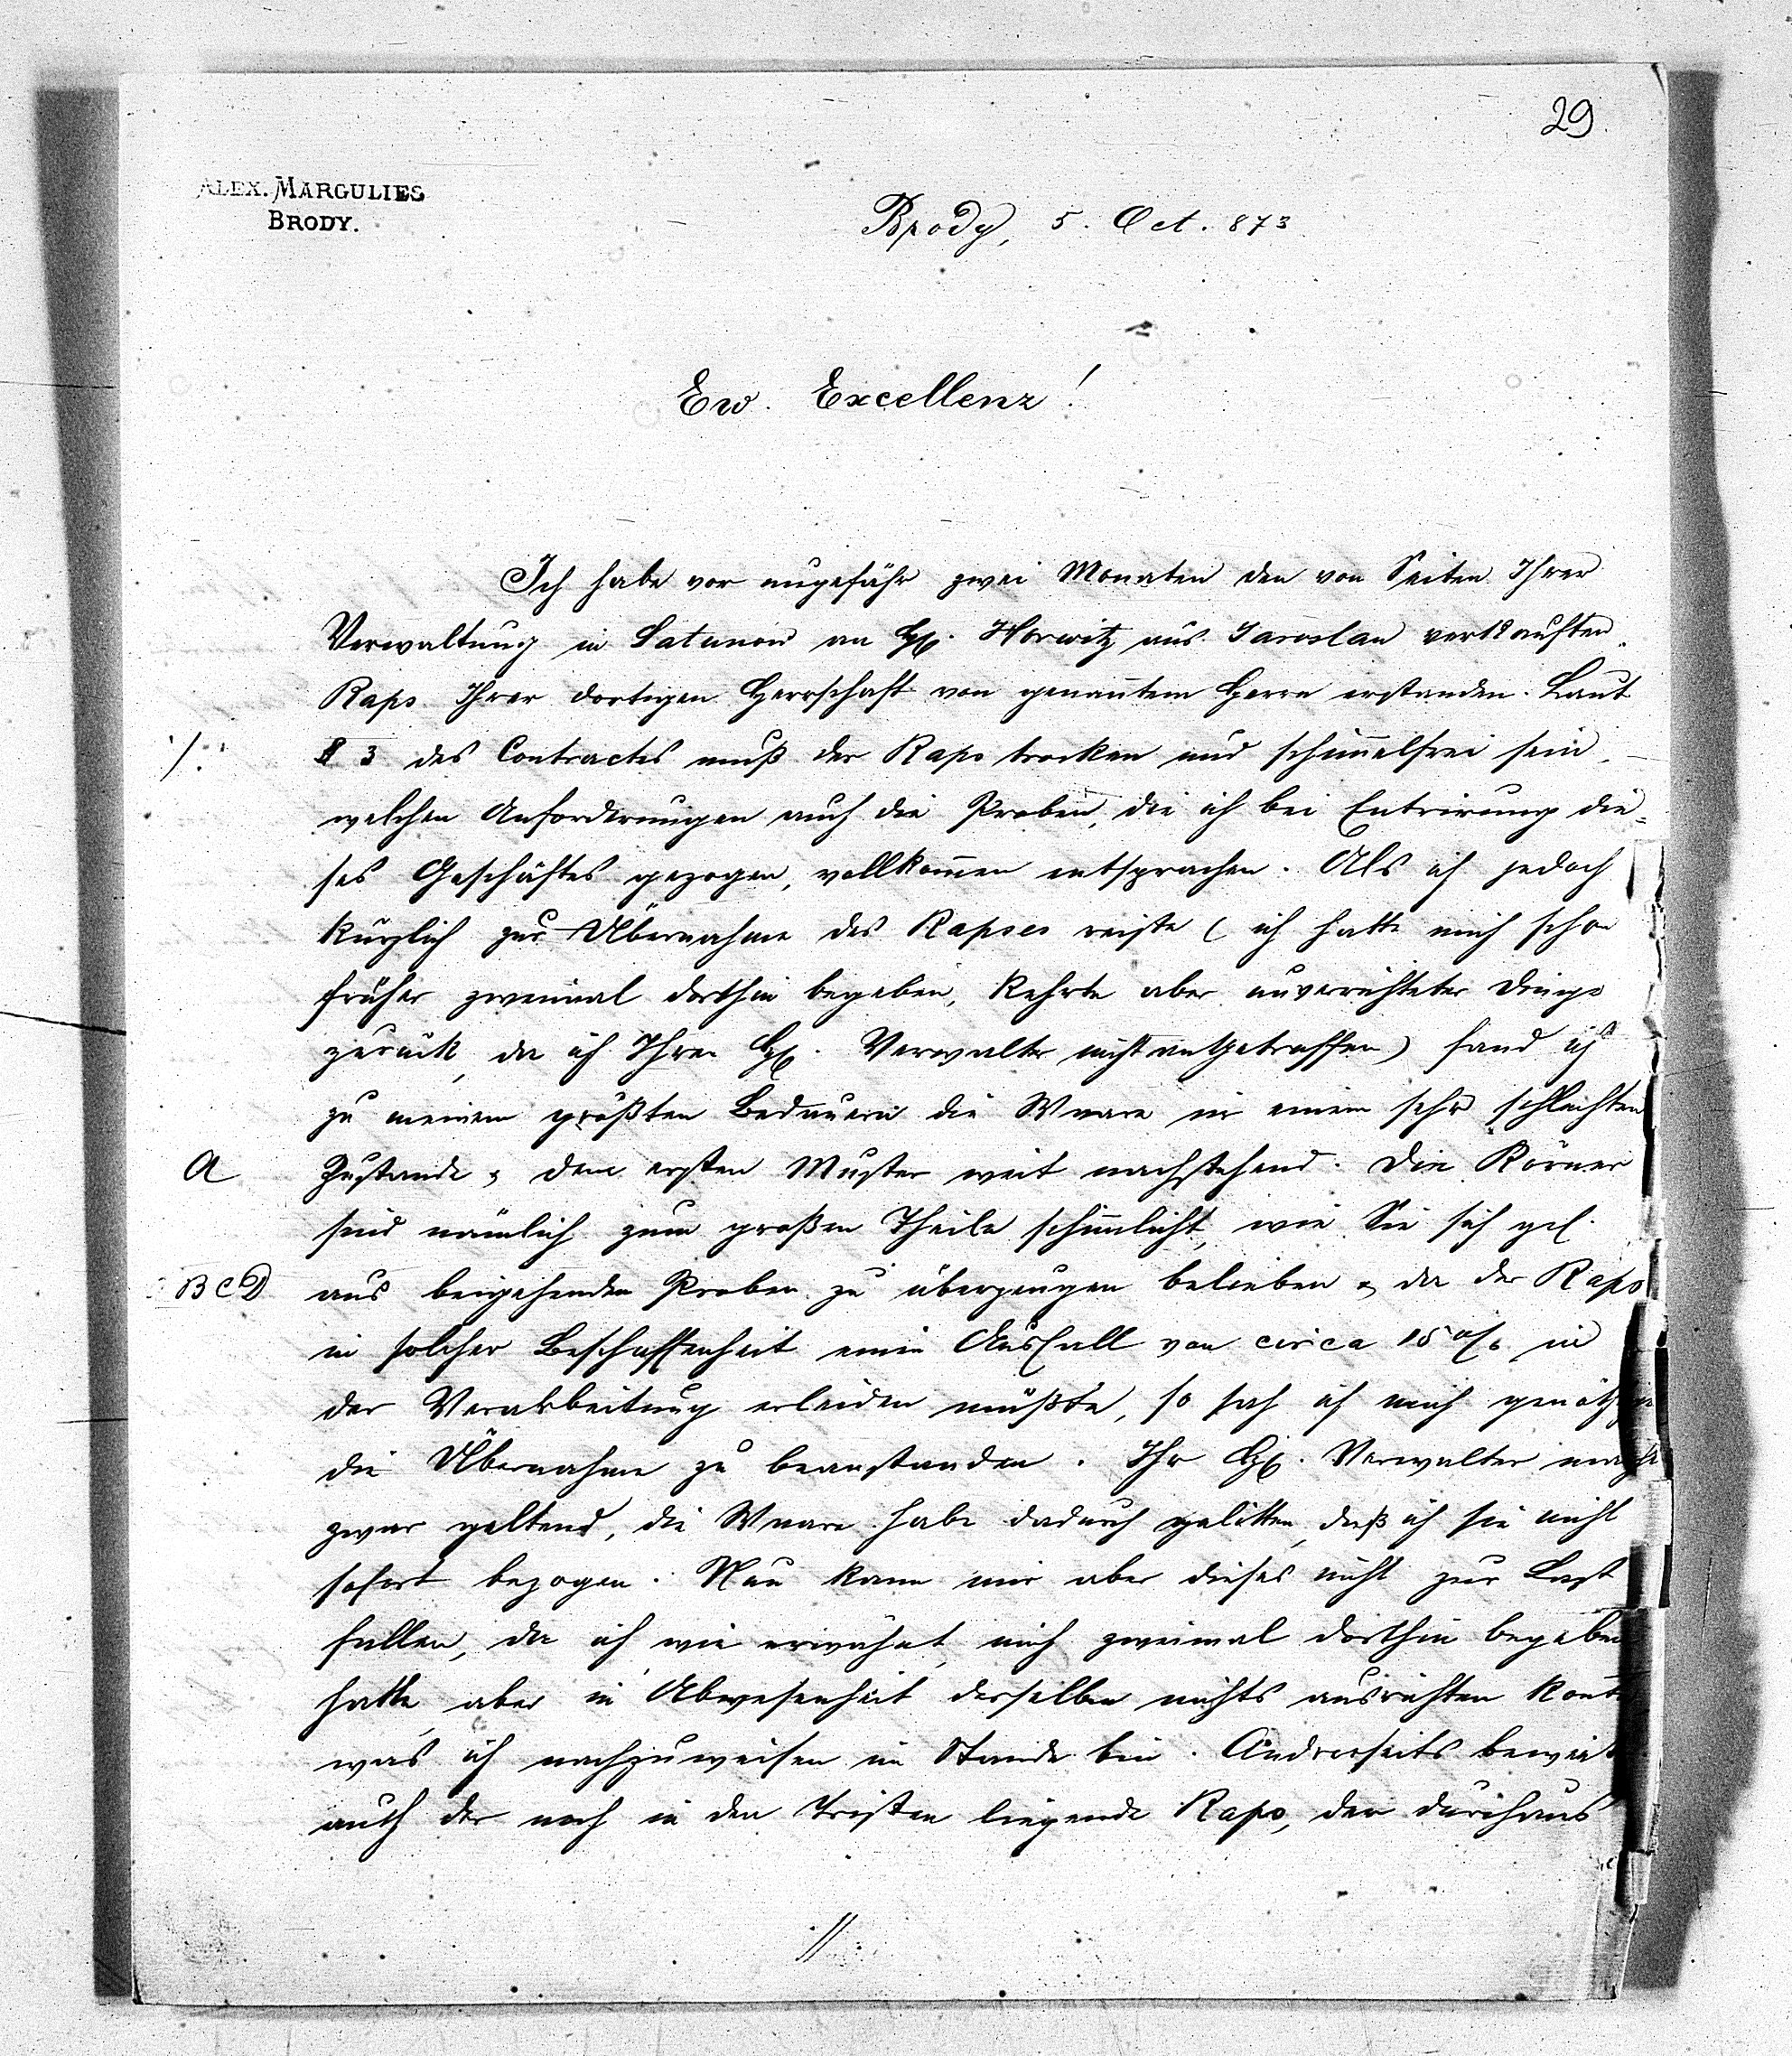 29.
ALEX. MARGULIES
BRODY.
Brody, 5. Oct. 873.
Ew. Excellenz!
Ich habe vor ungefähr zwei Monaten den von Seiten Ihrer
Verwaltung in Satanów an H. Horwitz aus Jaroslau verkauften
Raps Ihrer dortigen Herrschaft von genan̄tem Herrn erstanden. Laut
./. § 3 des Contractes muß der Raps trocken und schim̄elfrei sein,
welchen Anforderungen auch die Proben, die ich bei Entrirung die-
ses Geschäftes gezogen, vollkom̄en entsprachen. Als ich jedoch
kürzlich zur Übernahme des Rapses reiste (ich hatte mich schon
früher zweimal dorthin begeben, kehrte aber unverrichteter Dinge
zurück, da ich Ihren H. Verwalter nicht angetroffen) fand ich
zu meinem größten Bedauern die Waare in einem sehr schlechten
A Zustande & dem ersten Muster weit nachstehend. Die Körner
sind nämlich zum großen Theile schim̄licht, wie Sie sich gef.
B C D aus beigehenden Proben zu überzeugen belieben & da der Raps
in solcher Beschaffenheit einen Ausfall von circa 15 % in
der Verarbeitung erleiden müßte, so sah ich mich genöthigt
die Übernahme zu beanstanden. Ihr H. Verwalter macht
zwar geltend, die Waare habe dadurch gelitten, daß ich sie nicht
sofort bezogen. Nun kann mir aber dieses nicht zur Last
fallen, da ich, wie erwähnt, mich zweimal dorthin begeben
hatte, aber in Abwesenheit desselben nichts ausrichten kon̄te
was ich nachzuweisen im Stande bin. Andrerseits beweist
auch der noch in den Tristen liegende Raps, der durchaus
.//.